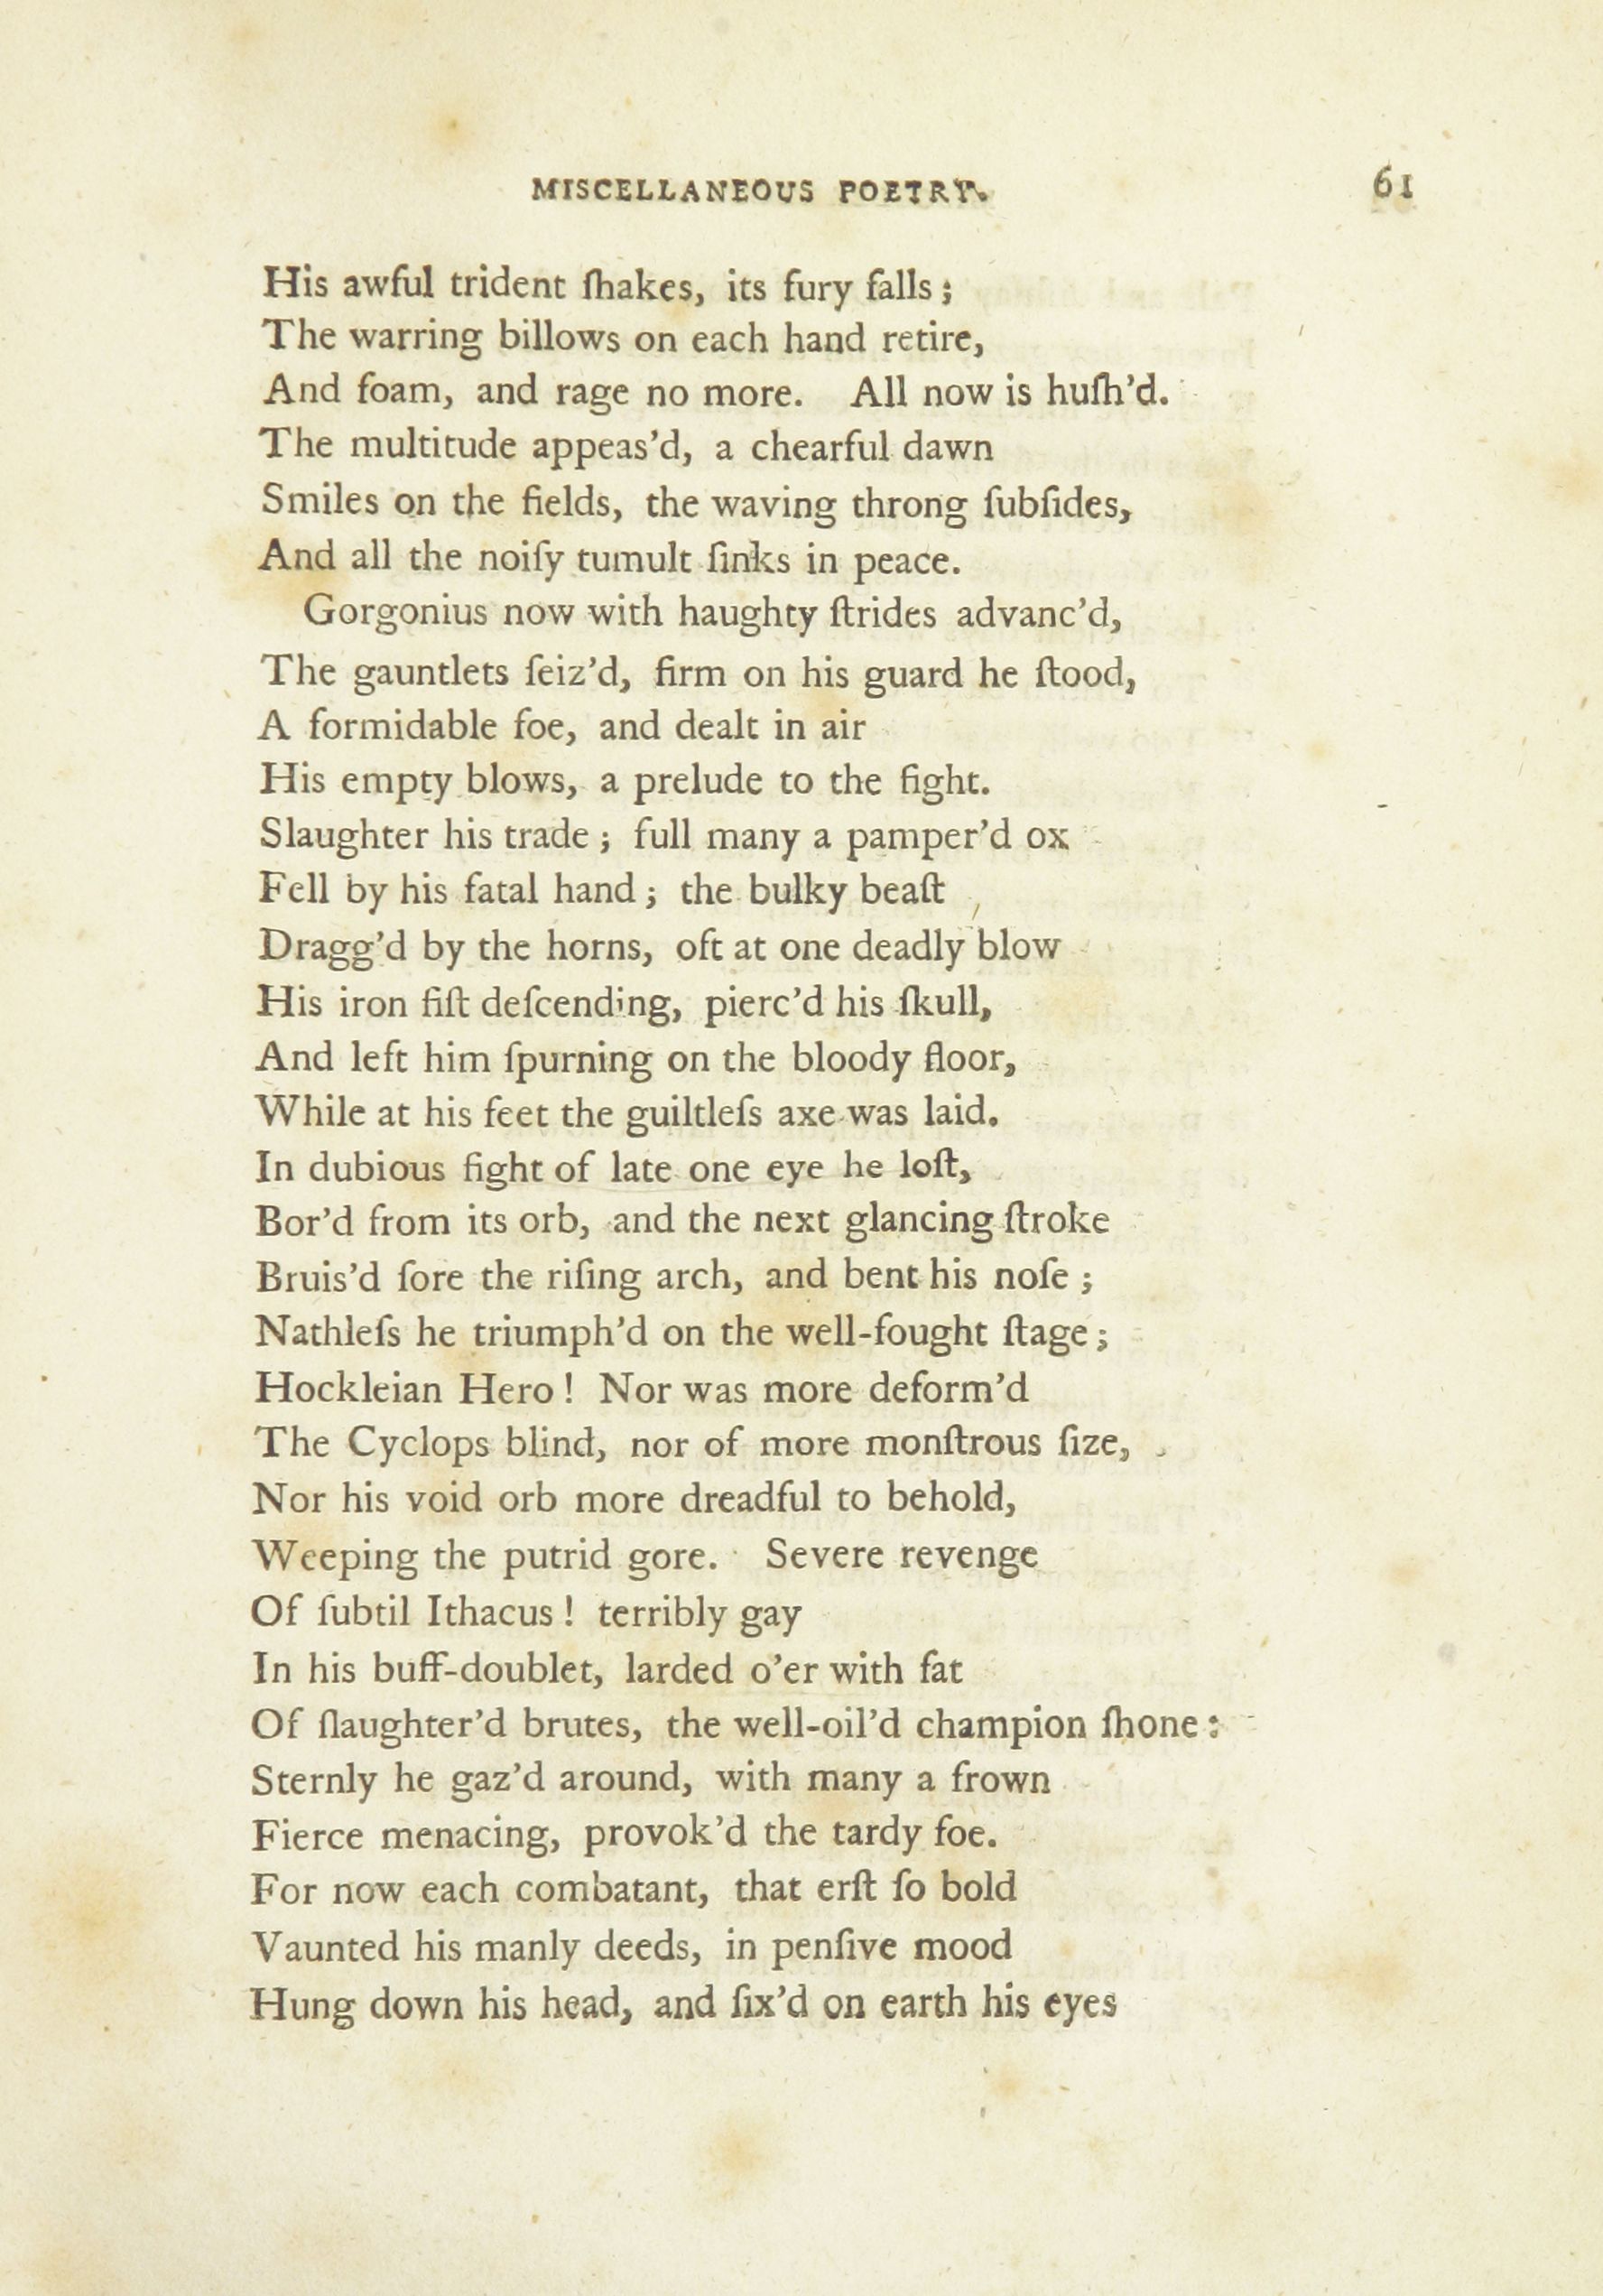 MISCELLANEOUS POETRY. 61
His awful trident ſhakes, its fury falls;
The warring billows on each hand retire,
And foam, and rage no more. All now is huſh'd.
The multitude appeas'd, a chearful dawn
Smiles on the fields, the waving throng ſubſides,
And all the noiſy tumult ſinks in peace.
Gorgonius now with haughty ſtrides advanc'd,
The gauntlets ſeiz'd, firm on his guard he ſtood,
A formidable foe, and dealt in air
His empty blows, a prelude to the fight.
Slaughter his trade; full many a pamper'd ox
Fell by his fatal hand; the bulky beaſt
Dragg'd by the horns, oft at one deadly blow
His iron fiſt deſcending, pierc'd his ſkull,
And left him ſpurning on the bloody floor,
While at his feet the guiltleſs axe was laid.
In dubious fight of late one eye he loſt,
Bor'd from its orb, and the next glancing ſtroke
Bruis'd ſore the riſing arch, and bent his noſe;
Nathleſs he triumph'd on the well-fought ſtage;
Hockleian Hero! Nor was more deform'd
The Cyclops blind, nor of more monſtrous ſize,
Nor his void orb more dreadful to behold,
Weeping the putrid gore. Severe revenge
Of ſubtil Ithacus! terribly gay
In his buff-doublet, larded o'er with fat
Of ſlaughter'd brutes, the well-oil'd champion ſhone:
Sternly he gaz'd around, with many a frown
Fierce menacing, provok'd the tardy foe.
For now each combatant, that erſt ſo bold
Vaunted his manly deeds, in penſive mood
Hung down his head, and ſix'd on earth his eyes